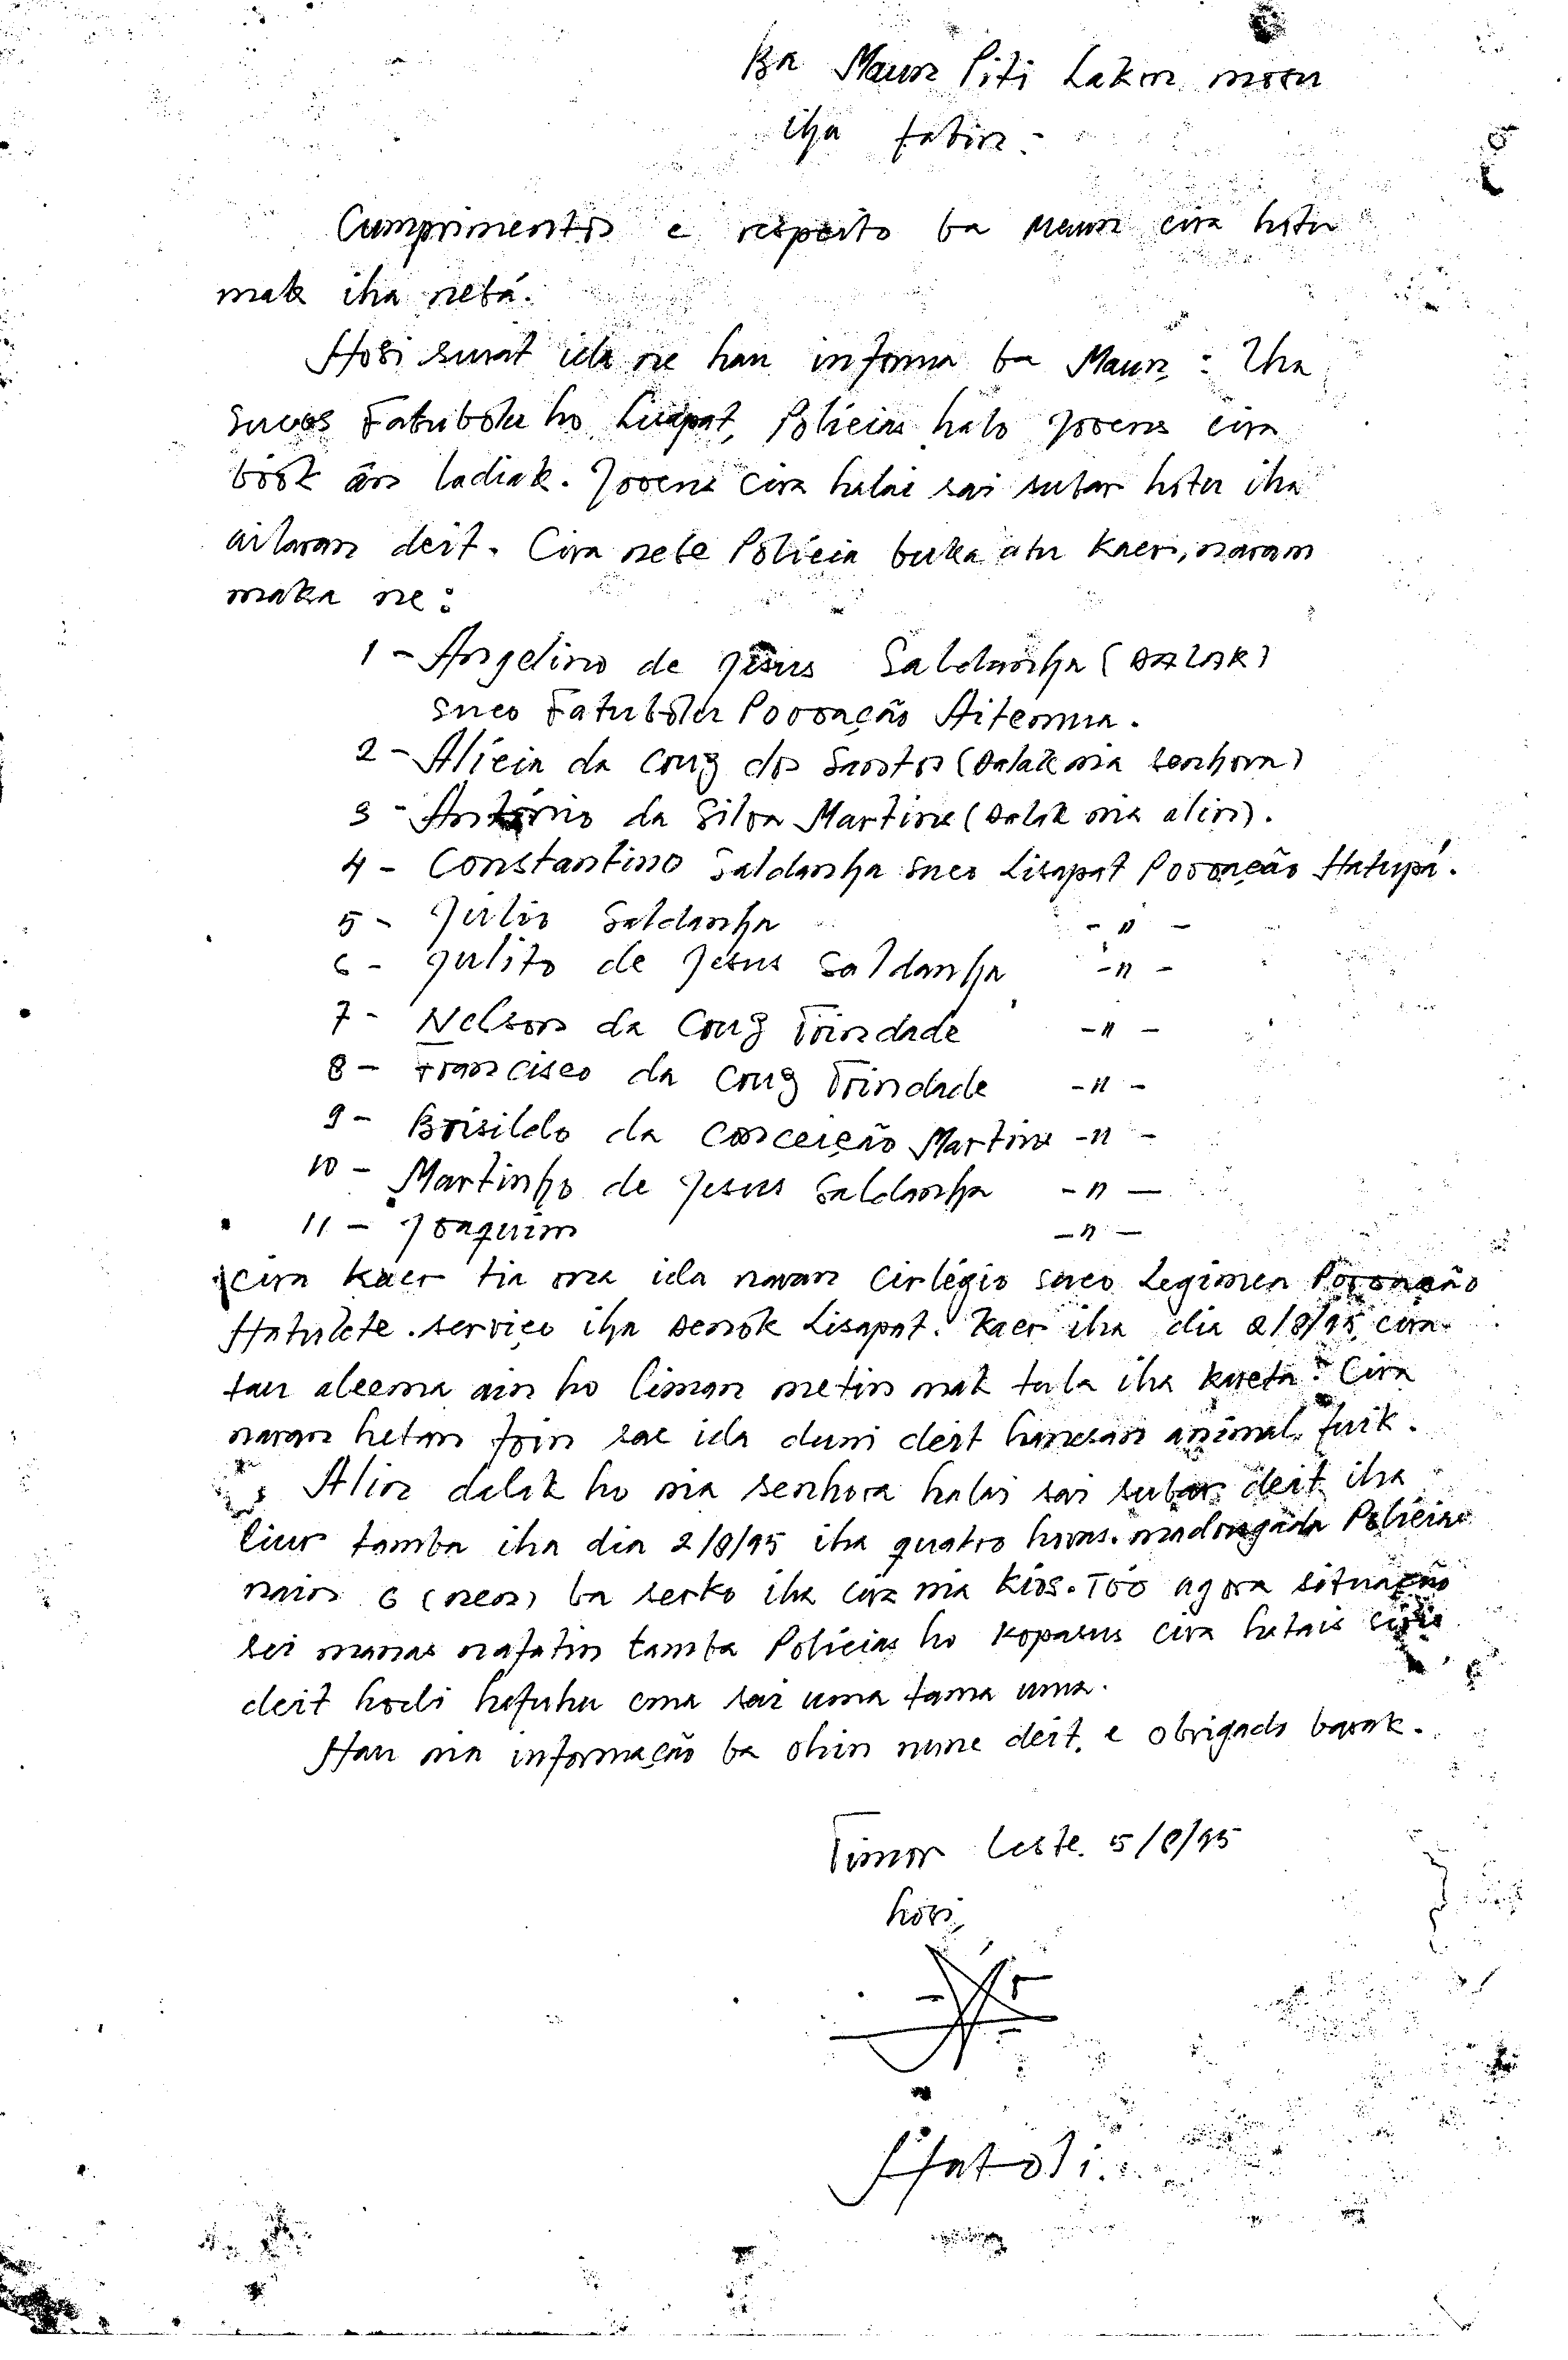 Ba Maun Piti Lakon mosu
iha fatin.
Cumprimentos e respeito ba Maun cira hotu
mak iha nebá.
Hosi surat ida ne hau informa ba Maun : Iha
sucos Fatubolu ho Lisapat, Polícias halo Jovens cira
book án ladiak. Jovens cira halai sai subar hotu iha
ailaran deit. Cira nebe Polícia buka atu kaer, naran
maka ne :
1 - Angelino de Jesus Saldanha (DALAK)
suco Fatubolu Povoação Aitemua.
2 - Alícia da Cruz dos Santos (Dalak nia senhora)
3 - António da Silva Martins (Dalak nia alin).
4 - Constantino Saldanha suco Lisapat Povoação Hatupá.
5 - Júlio Saldanha - " -
6 - Julito de Jesus Saldanha - " -
7 - Nelson da Cruz Trindade - " -
8 - Francisco da Cruz Trindade - " -
9 - Brisildo da Conceição Martins - " -
10 - Martinho de Jesus Saldanha - " -
11 - Joaquim - " -
cira kaer tia ma ida naran Cirlégio suco Legimea Povoação
Hatulete. serviço iha Denok Lisapat. Kaer iha dia 2/8/95 cira
tau algema ain ho liman metin mak tula iha kareta. Cira
naran hetan foin sae ida duni deit hanesan animal fuik.
Alin dalak ho nia senhora halai sai subar deit iha
liur tamba iha dia 2/8/95 iha quatro horas madrugada Polícias
nain 6 (nen) ba serko iha cira nia kios. Tóo agora situação
sei manas nafatin tamba Polícias ho Kopasus cira hatais sivil
deit hodi hafuhu ema sai uma tama uma.
Hau nia informação ba ohin nune deit, e obrigado barak.
Timor Leste. 5/8/95
hosi,
Hatoli.